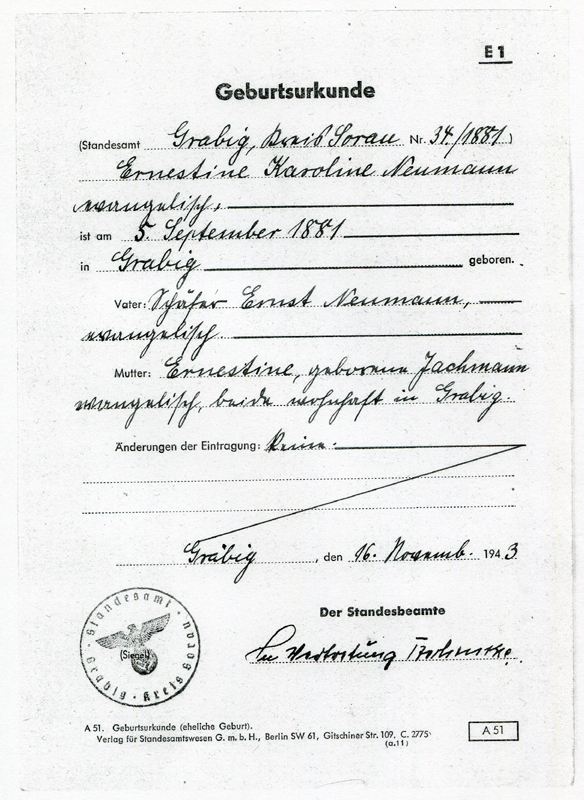 E 1
Geburtsurkunde
(Standesamt Grabig, Kreis Sorau Nr. 34/1881)
Ernestine Karoline Neumann
evangelisch,
ist am 5. September 1881
in Grabig geboren.
Vater: Schäfer Ernst Neumann,
evangelisch
Mutter: Ernestine, geborene Jachmann
evangelisch, beide wohnhaft in Grabig.
Änderungen der Eintragung: Keine.
Gräbig, den 16. Novemb. 1943
Standesamt
(Siegel)
Grabig · Kreis Sorau
Der Standesbeamte
In Vertretung
A 51. Geburtsurkunde (eheliche Geburt).
Verlag für Standesamtswesen G. m. b. H., Berlin SW 61, Gitschiner Str. 109. C. 2775
(a.11)
A 51